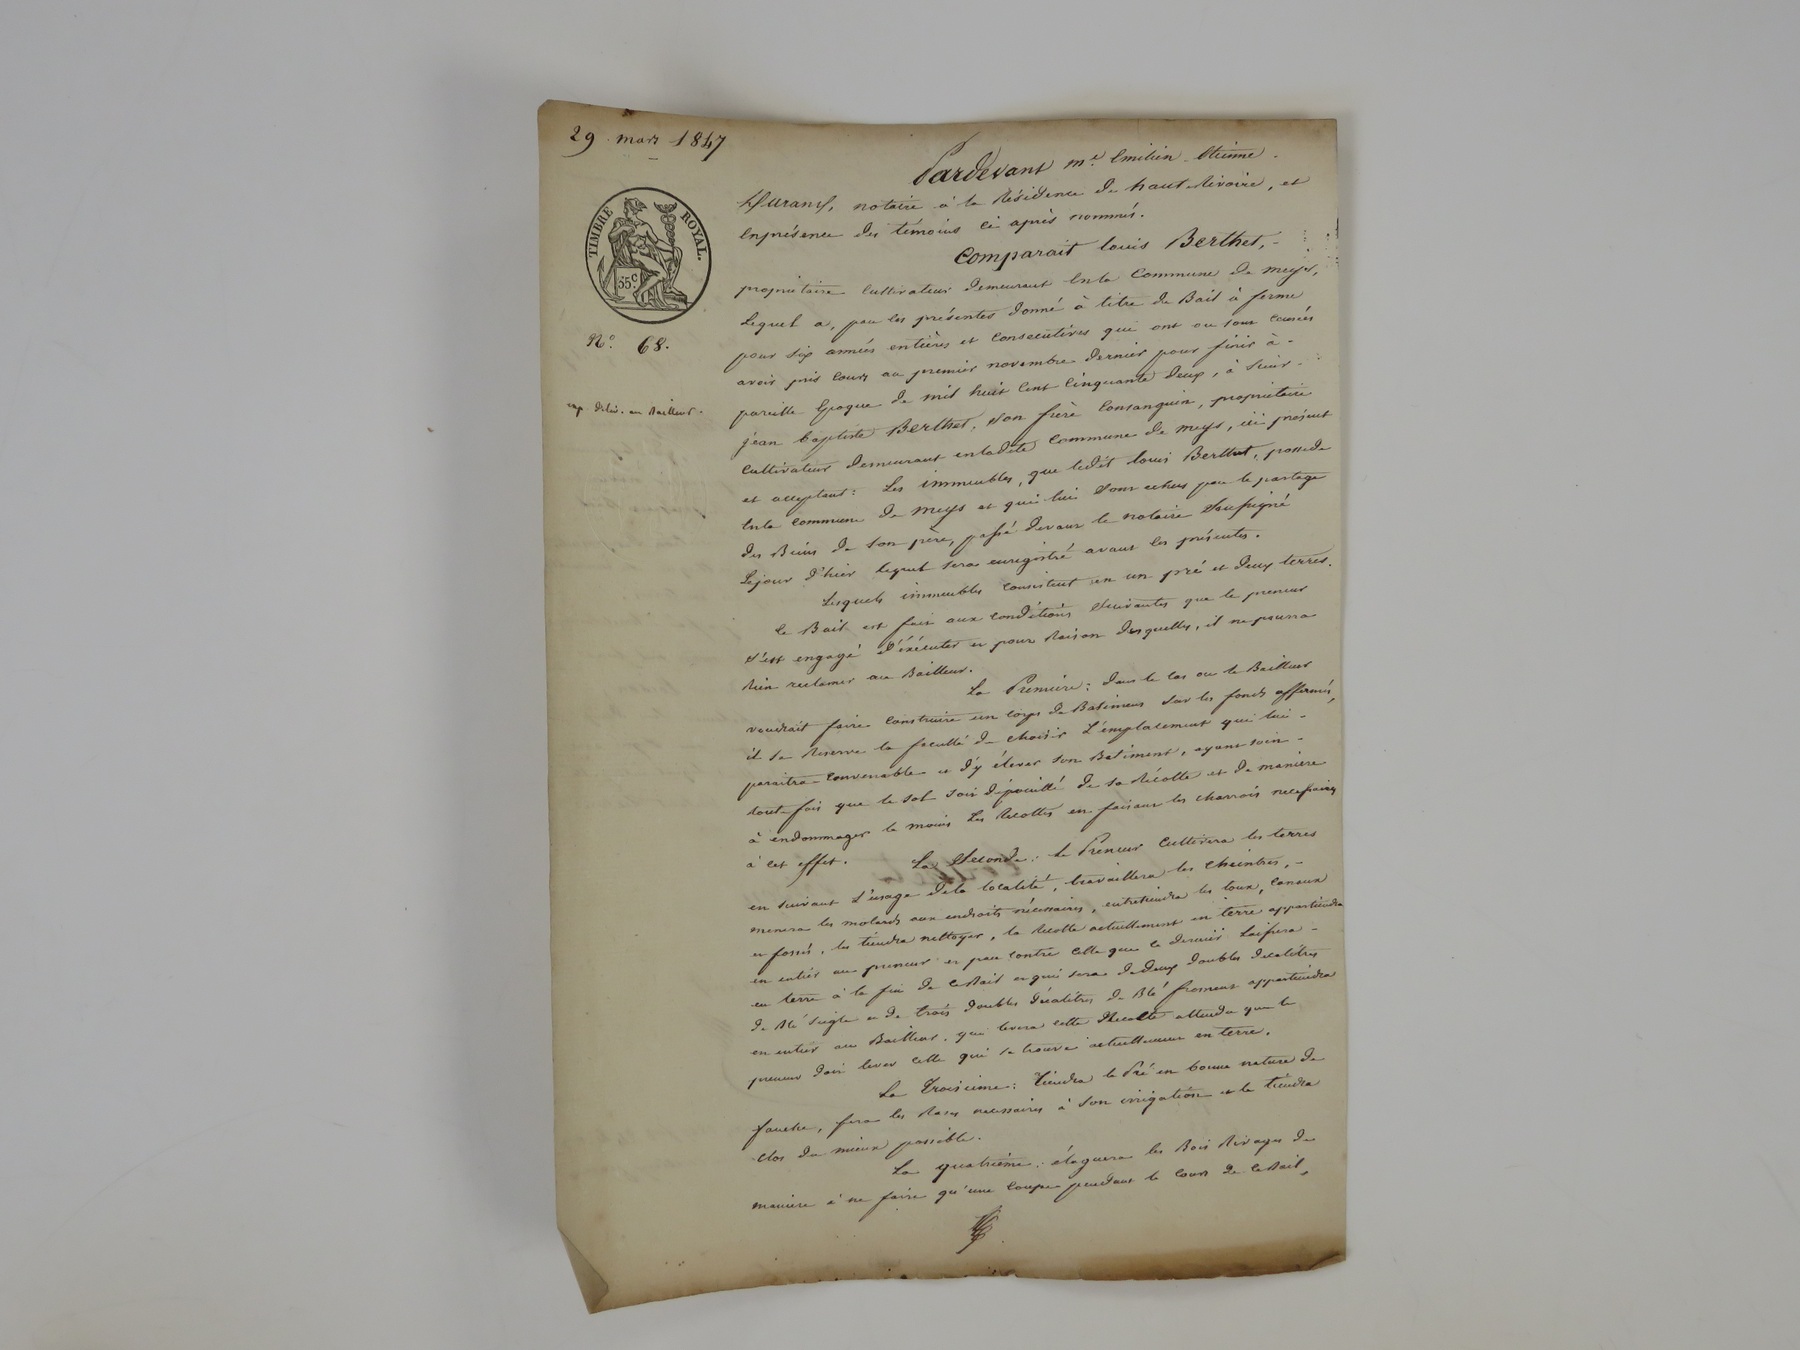 29 mars 1847
Pardevant me Emilien Etienne
Durand, notaire à la Résidence de haut Rivoire, et
en présence des témoins ci après nommés.
TIMBRE ROYAL.
35 c.
Comparait louis Berthet,
propriétaire cultivateur demeurant en la Commune de meys,
Lequel a, par les présentes donné à titre de Bail à ferme
No. 68.
pour six années entières et consecutives qui ont ou sont censées
avoir pris cours au premier novembre dernier pour finir à
pareille Epoque de mil huit cent cinquante deux, à Sieur
exp. déliv. au Bailleur.
jean baptiste Berthet, son frère consanguin, propriétaire
cultivateur demeurant en ladite commune de meys, ici présent
et acceptant : Les immeubles, que ledit louis Berthet, possede
en la commune de meys et qui lui sont echus par le partage
des Biens de son père, passé devant le notaire soussigné
Lejour d'hier lequel sera enregistré avant les présentes.
Lesquels immeubles consistent en un pré et deux terres.
Ce Bail est fait aux conditions suivantes que le preneur
s'est engagé d'éxécuter et pour Raison desquelles, il ne pourra
Rien reclamer au Bailleur.
La Première : dans le cas ou le Bailleur
voudrait faire construire un corps de Batiment sur les fonds affermés,
il se Reserve la faculté de choisir L'emplacement qui lui
paraitra convenable et d'y élever son Batiment, ayant soin
toute fois que le sol soit dépouillé de sa Récolte et de manière
à endommager le moins les Recoltes en faisant les charrois necessaires
à cet effet. La Seconde : le Preneur cultivera les terres
en suivant L'usage de la localité, travaillera les cheintres,
menera les molards aux endroits nécessaires, entretiendra les toux, canaux
et fossés, les tiendra nettoyer, la Recolte actuellement en terre appartiendra
en entier au preneur et par contre celle que ce dernier Laissera
en terre à la fin de ce Bail et qui sera de deux doubles decalitres
de Blé Seigle et de trois doubles décalitres de Blé froment appartiendra
en entier au Bailleur, qui levera cette Recolte attendu que le
preneur doit lever celle qui se trouve actuellement en terre.
La Troisième : Tiendra le Pré en bonne nature de
fauche, fera les Rases necessaires à son irrigation et le tiendra
clos du mieux possible.
La quatrième : élaguera les Bois Rivages de
manière à ne faire qu'une coupe pendant le cours de ce Bail,